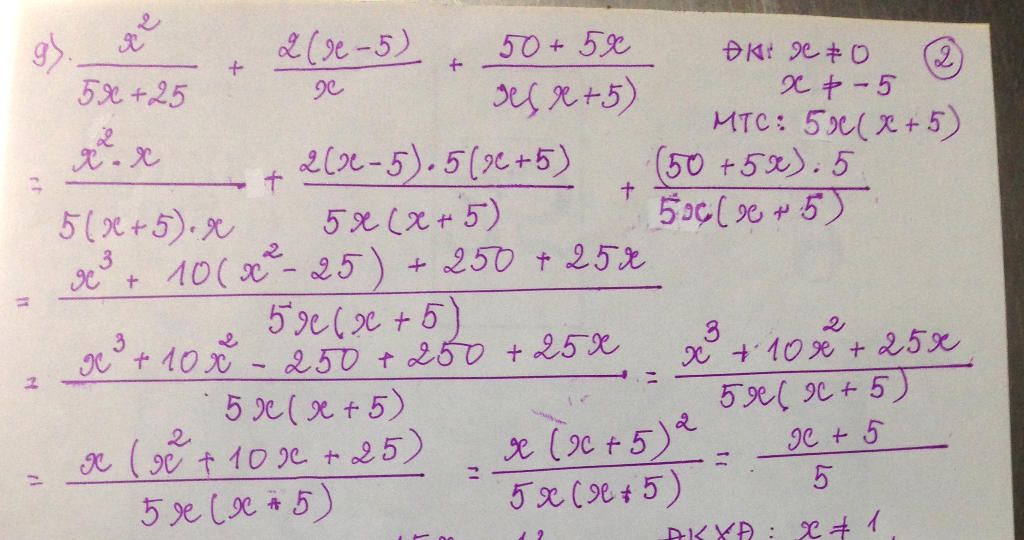 g). x²/(5x+25) + 2(x-5)/x + (50+5x)/(x(x+5)) ĐK: x ≠ 0 ②
x ≠ -5
MTC: 5x(x+5)
= x²·x/(5(x+5)·x) + 2(x-5)·5(x+5)/(5x(x+5)) + (50+5x)·5/(5x(x+5))
= (x³ + 10(x²-25) + 250 + 25x)/(5x(x+5))
= (x³ + 10x² - 250 + 250 + 25x)/(5x(x+5)) = (x³ + 10x² + 25x)/(5x(x+5))
= x(x² + 10x + 25)/(5x(x+5)) = x(x+5)²/(5x(x+5)) = (x+5)/5
ĐKXĐ: x ≠ 1